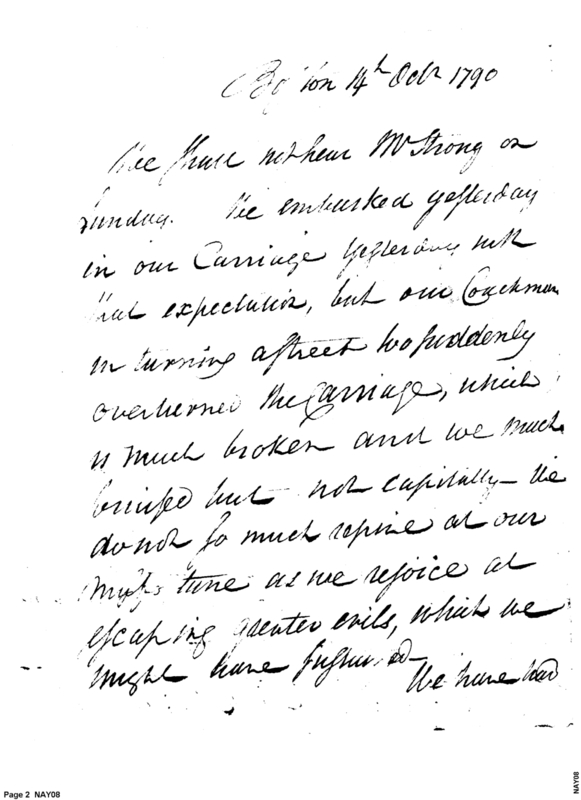 Boston 14th Octr 1790
We shall not hear Mr Strong on
Sunday. We embarked yesterday
in our Carriage yesterday with
that expectation, but our Coachman
in turning a street too suddenly
overturned the Carriage, which
is much broken and we much
bruised but not capitally— We
do not so much repine at our
misfortune as we rejoice at
escaping greater evils, which we
might have suffered—
We have had
Page 2 NAY08
NAY08